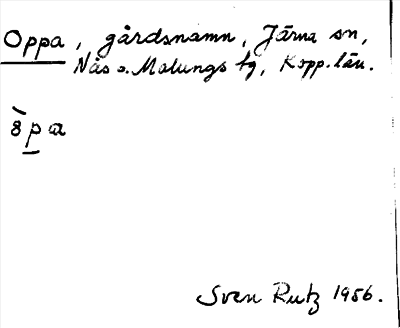 Oppa, gårdsnamn, Järna sn,
Nås o. Malungs tg, Kopp. län.
Sven Rutz 1956.